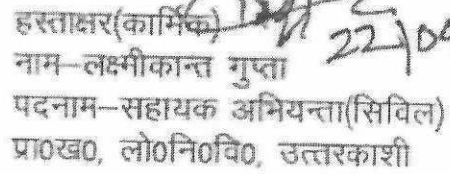 हस्ताक्षर(कार्मिक)
22/0
नाम–लक्ष्मीकान्त गुप्ता
पदनाम–सहायक अभियन्ता(सिविल)
प्रा0ख0, लो0नि0वि0, उत्तरकाशी